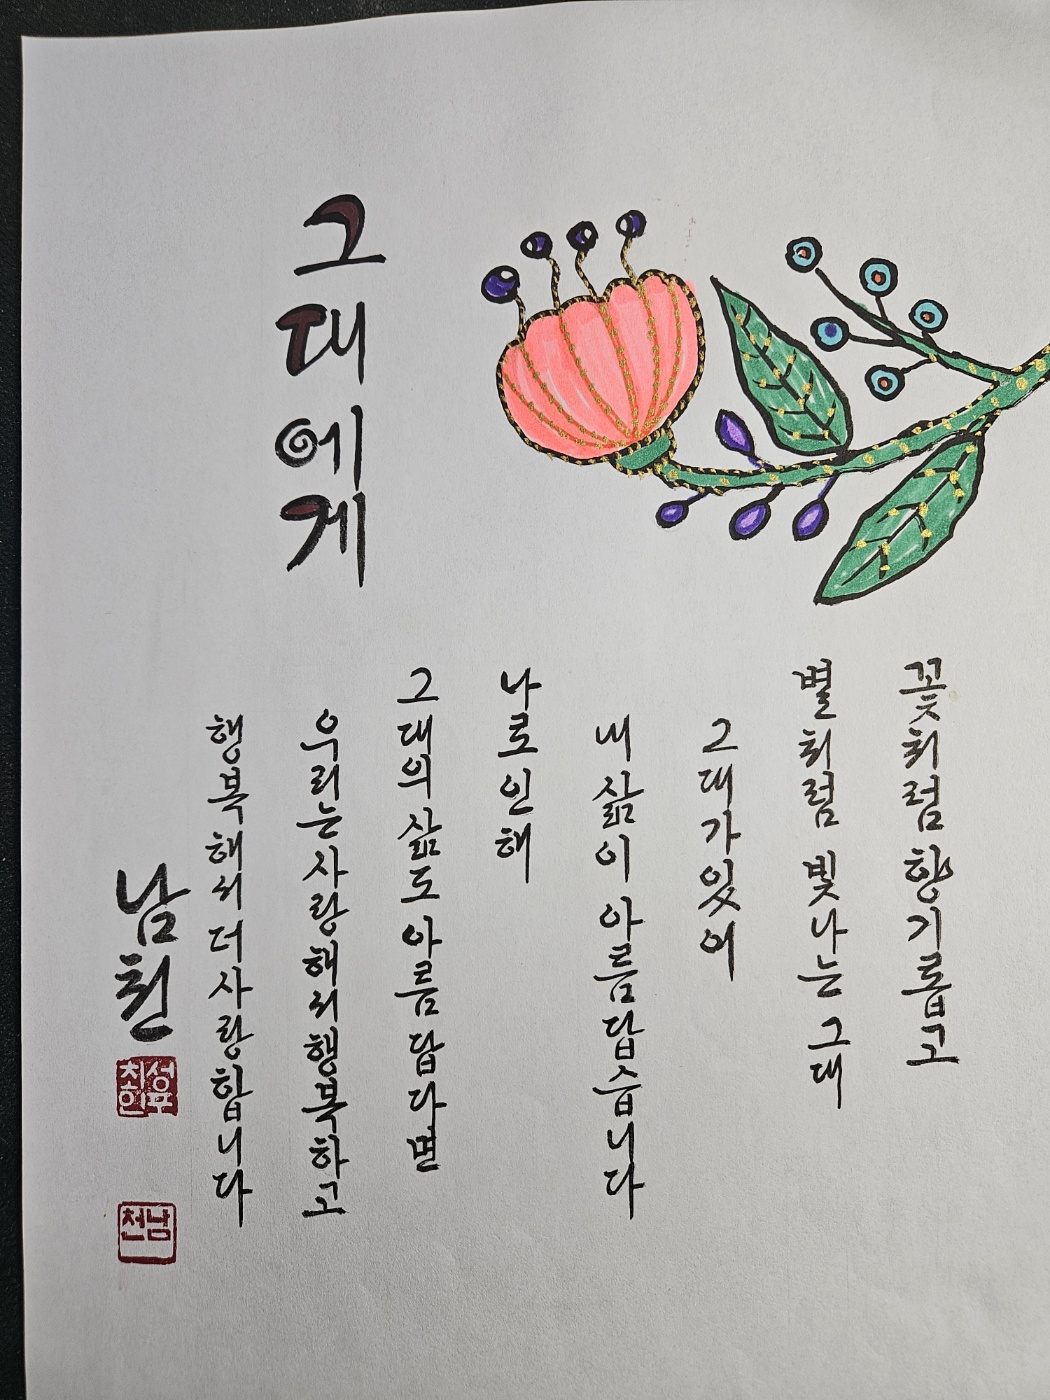 그대에게
꽃처럼 향기롭고
별처럼 빛나는 그대
그대가있어
내 삶이 아름답습니다
나로인해
그대의 삶도 아름답다면
우리는사랑해서행복하고
행복해서더사랑합니다
남천
남천